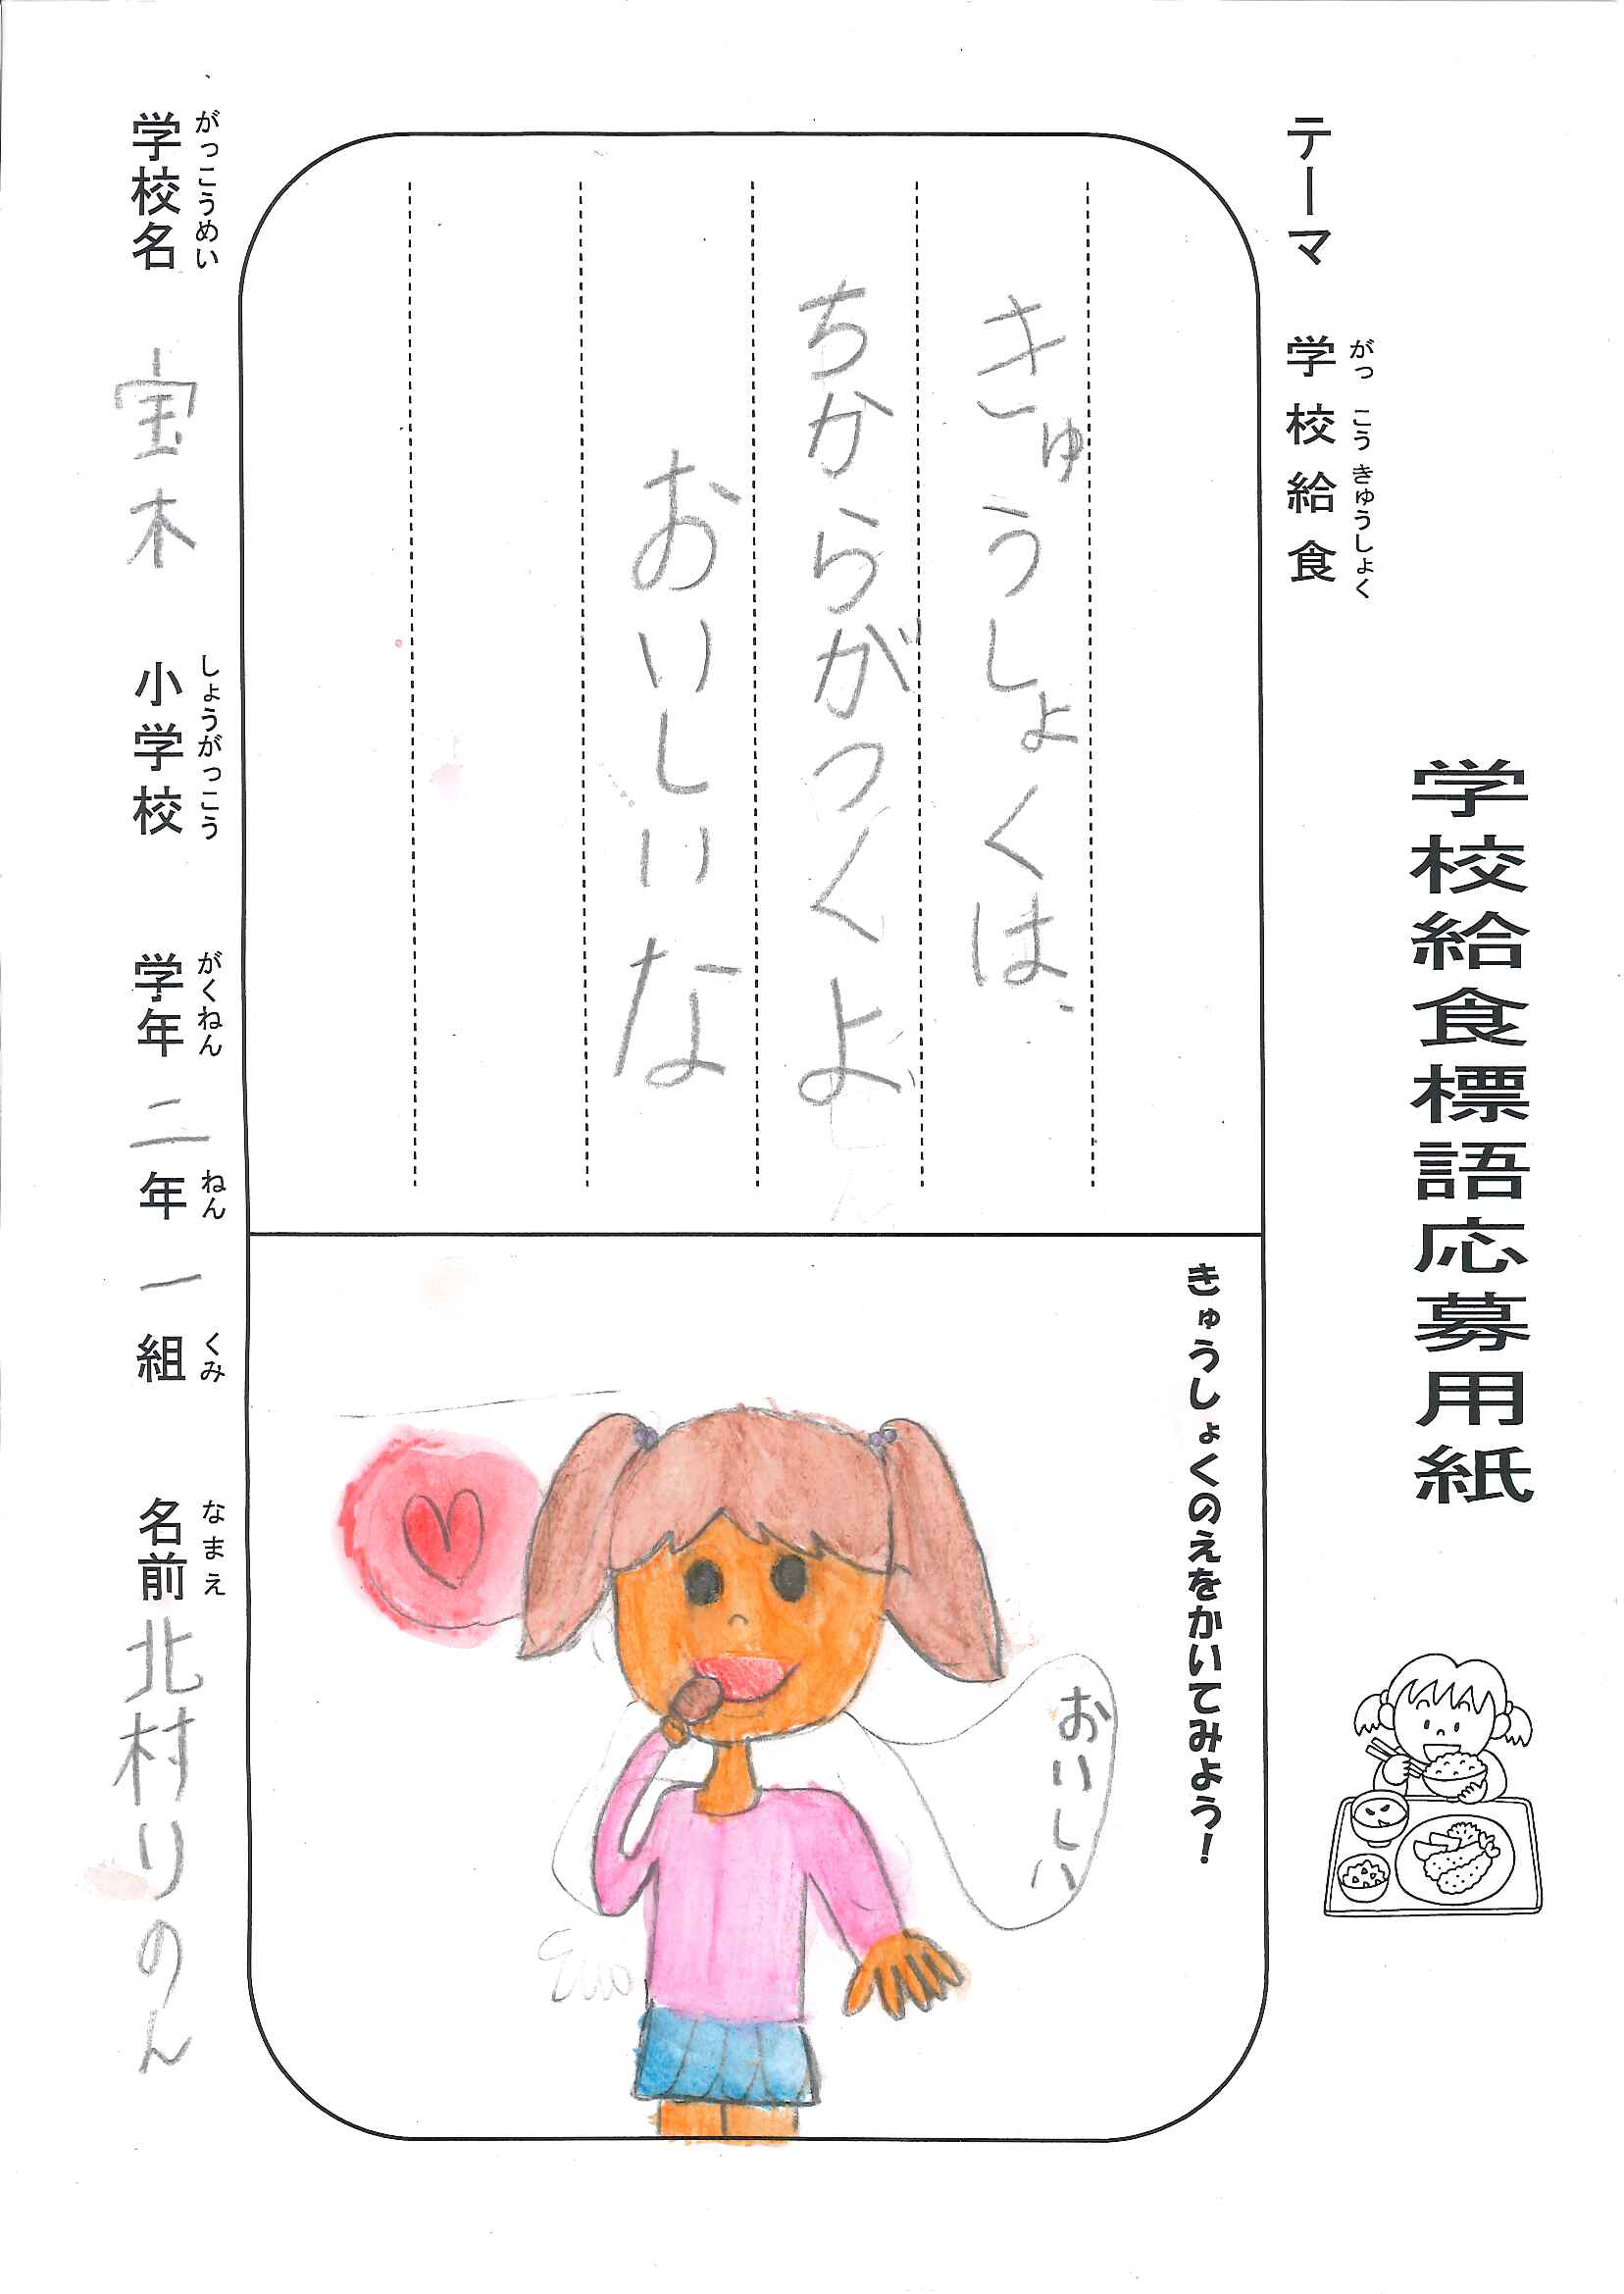 学校給食標語応募用紙
テーマ 学校給食
がっ こう きゅうしょく
きゅうしょくは、
ちからがつくよ
おいしいな
きゅうしょくのえをかいてみよう!
おいしい
がっこうめい しょうがっこう がくねん ねん くみ なまえ
学校名 宝木 小学校 学年 二年 一組 名前 北村りのん